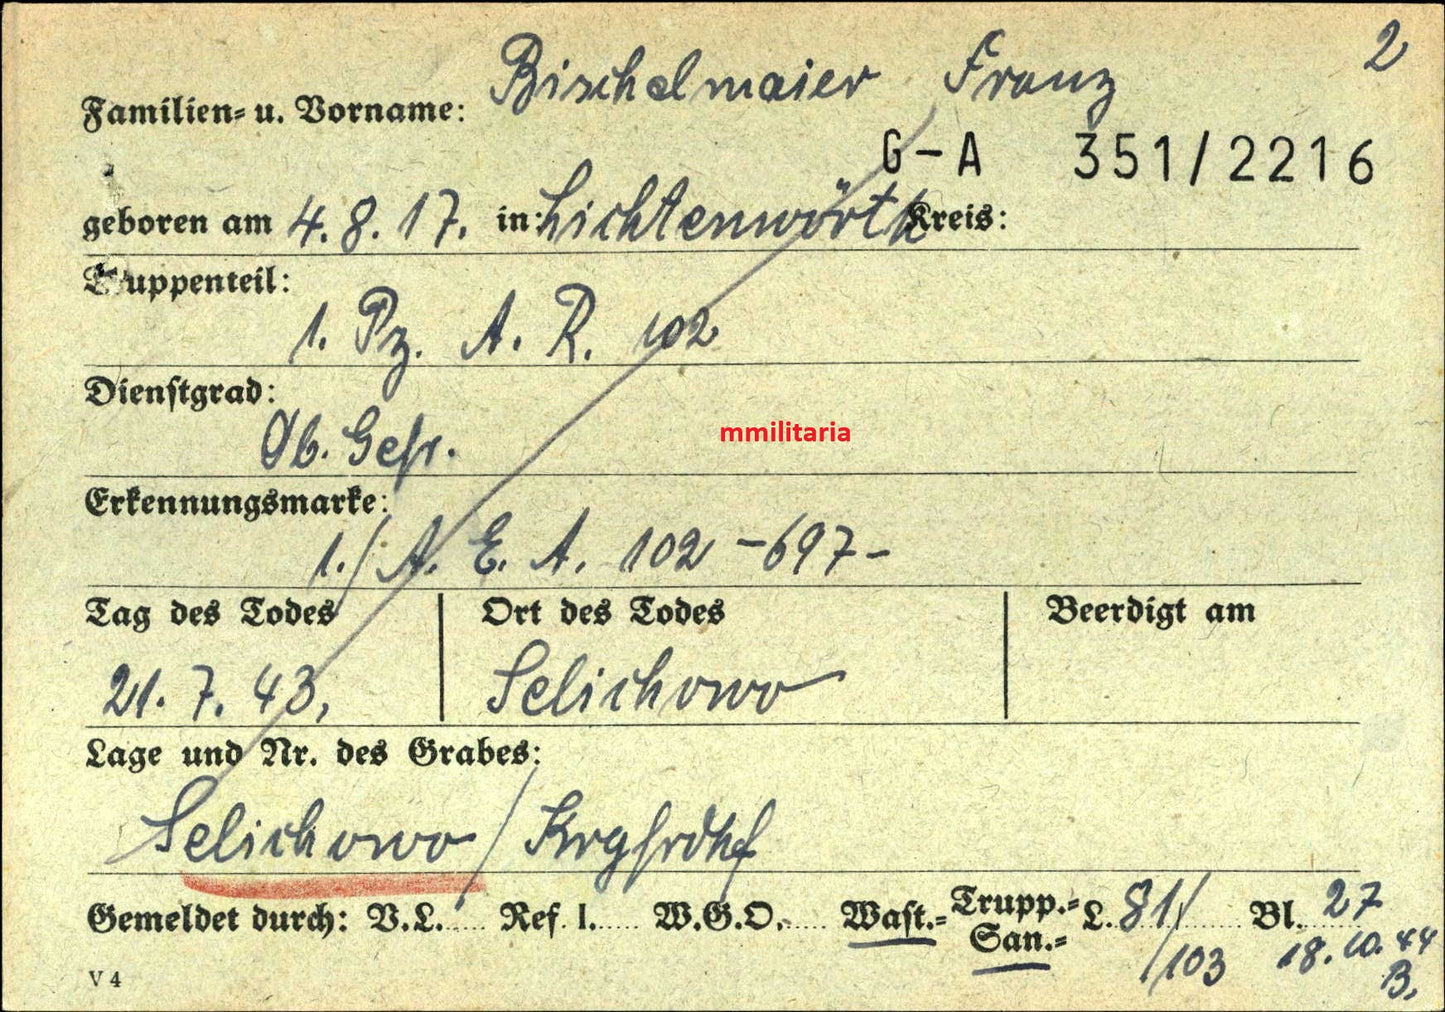 2
Familien- u. Vorname: Bischelmaier Franz
G-A 351/2216
geboren am 4.8.17. in: Lichtenwörth Kreis:
Truppenteil:
1. Pz. A. R. 102
Dienstgrad:
Ob. Gefr.
mmilitaria
Erkennungsmarke:
1./ A. E. A. 102 -697-
Tag des Todes Ort des Todes Beerdigt am
21. 7. 43, Selichowo
Lage und Nr. des Grabes:
Selichowo / Krgfrdhf
Gemeldet durch: V.L. Ref. I. W.G.O. Wast.- Trupp.- San.- L. 81/ Bl. 27
/103 18.10.44
B.
V 4